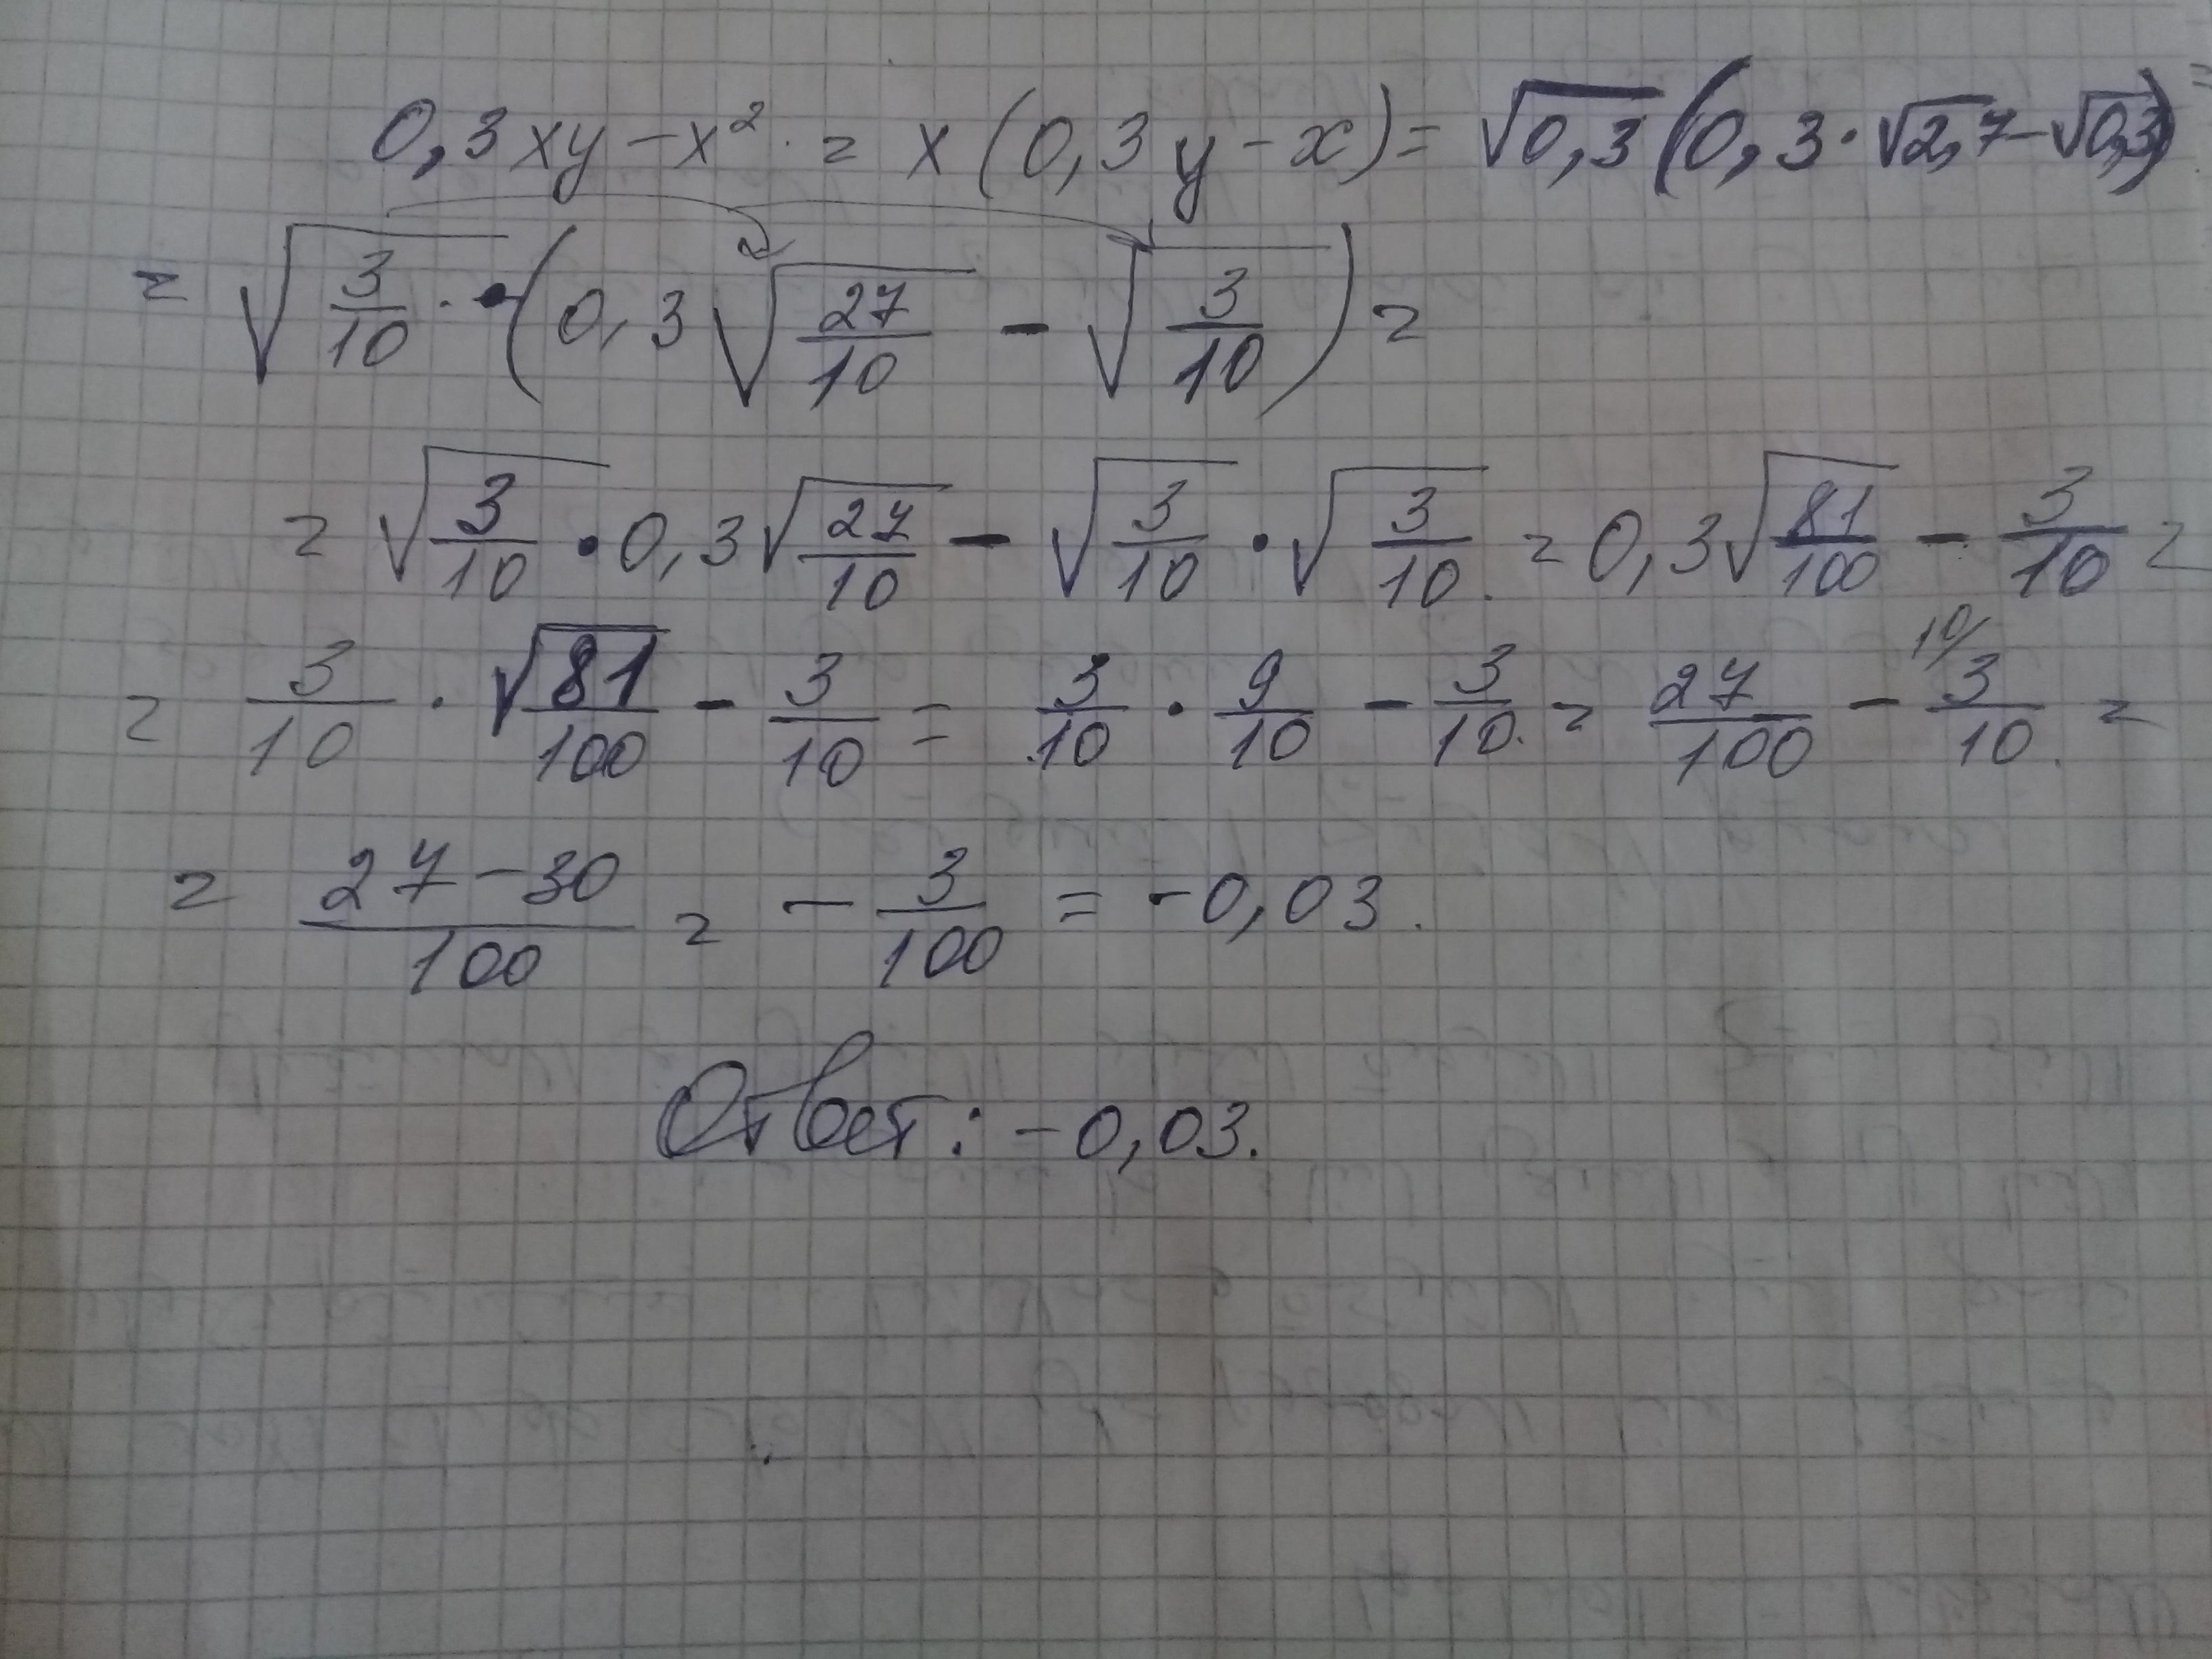 0,3xy - x² = x(0,3y - x) = √0,3(0,3·√2,7 - √0,3) =
= √(3/10) · (0,3√(27/10) - √(3/10)) =
= √(3/10) · 0,3√(27/10) - √(3/10) · √(3/10) = 0,3√(81/100) - 3/10 =
= 3/10 · √81/100 - 3/10 = 3/10 · 9/10 - 3/10 = 27/100 - 10/ 3/10 =
= (27-30)/100 = - 3/100 = -0,03.
Ответ: -0,03.